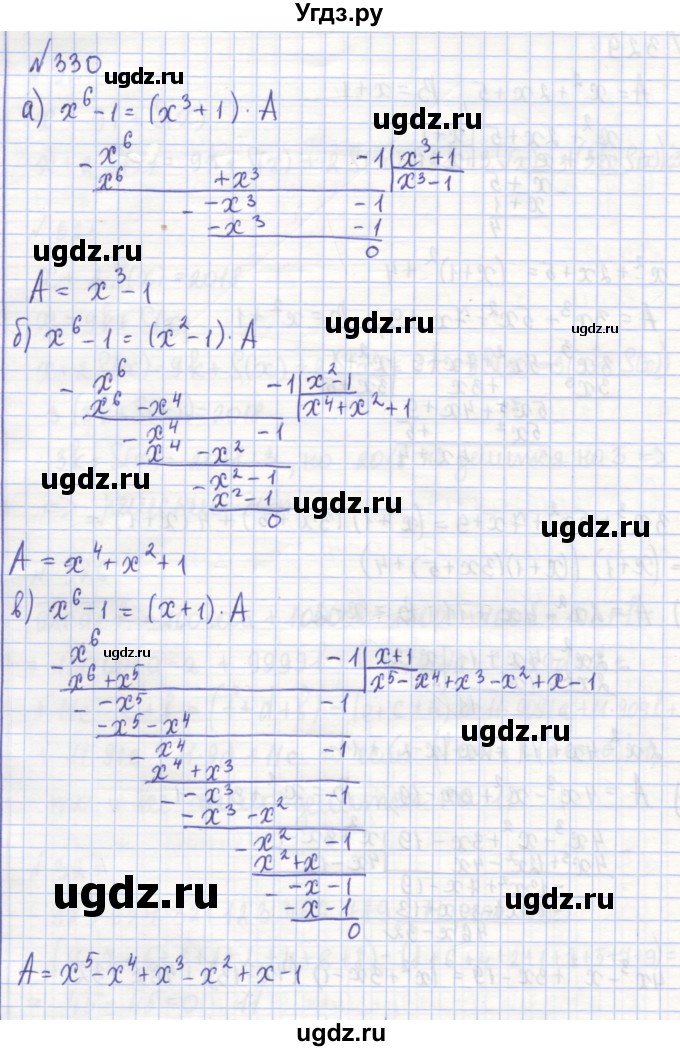 Угдз.ру
№330
ugdz.ru
а) x⁶-1 = (x³+1)·A
ugdz.ru
- x⁶ -1 | x³+1
x⁶ +x³ x³-1
- -x³ -1
-x³ -1
0
ugdz.ru
A = x³-1
ugdz.ru
ugdz.ru
б) x⁶-1 = (x²-1)·A
- x⁶ -1 | x²-1
x⁶ -x⁴ x⁴+x²+1
- x⁴ -1
x⁴ -x²
ugdz.ru
- x²-1
x²-1
ugdz.ru
0
ugdz.ru
A = x⁴+x²+1
в) x⁶-1 = (x+1)·A
ugdz.ru
- x⁶ -1 | x+1
x⁶+x⁵ x⁵-x⁴+x³-x²+x-1
- -x⁵ -1
-x⁵-x⁴
ugdz.ru
- x⁴ -1
x⁴+x³
- -x³ -1
-x³-x²
- x² -1
x²+x
ugdz.ru
- -x-1
-x-1
ugdz.ru
0
A = x⁵-x⁴+x³-x²+x-1
ugdz.ru